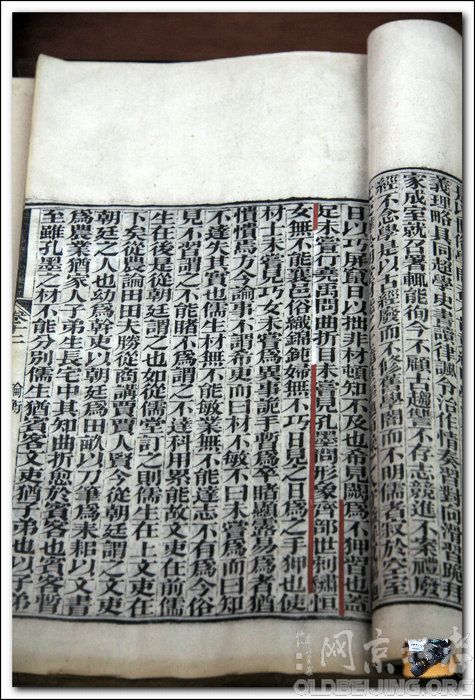 義理略具同超學史書讀律諷令治作情奏習對向滑習跪拜
家成室就召署輒能徇今不顧古趨讎不存志競進不案禮廢
經不念學是以古經廢而不修舊學闇而不明儒者寂於空室
日以巧屏竄日以拙非材頓知不及也希見闕爲不狎習也蓋
足未嘗行堯禹問曲折目未嘗見孔墨問形象齊部世刺繡恒
女無不能襄邑俗織錦鈍婦無不巧日見之日爲之手狎也使
材士未嘗見巧女未嘗爲異事詭手暫爲卒睹顯露易爲者猶
憒憒焉方今論事不謂希更而曰材不敏不曰未嘗爲而曰知
不達失其實也儒生材無不能敏業無不能達志不有爲今俗
見不習謂之不能睹不爲謂之不達科用累能故文吏在前儒
生在後足從朝廷謂之也如從儒堂訂之則儒生在上文吏在
下矣從農論田田夫勝從商講賈賈人賢今從朝廷謂之文吏
朝廷之人也幼爲幹吏以朝廷爲田畝以刀筆爲耒耜以文書
爲農業猶家人子弟生長宅中其知曲折愈於賓客也賓客暫
至雖孔墨之材不能分別儒生猶賓客文吏猶子弟也以子弟
卷十二 論衡
老北京网
OLDBEIJING.ORG